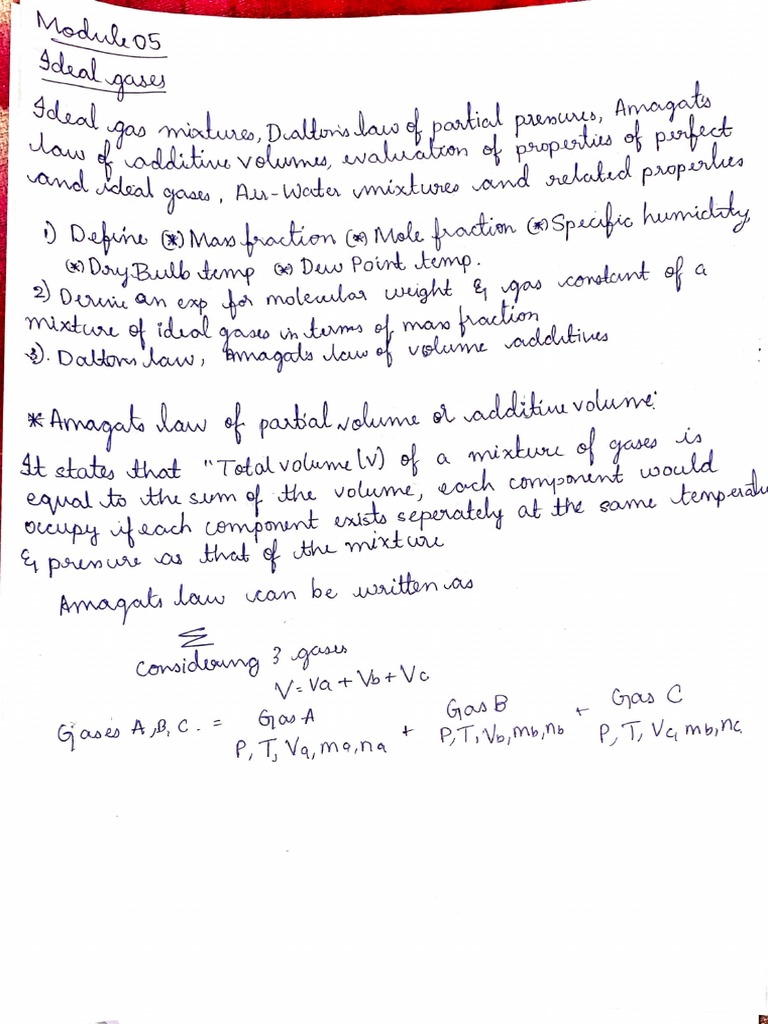 Module 05
Ideal gases
Ideal gas mixtures, Dalton's law of partial pressures, Amagat's
law of additive volumes, evaluation of properties of perfect
and ideal gases, Air-Water mixtures and related properties
1) Define (*) Mass fraction (*) Mole fraction (*) Specific humidity
(*) Dry Bulb temp (*) Dew Point temp.
2) Derive an exp for molecular weight & gas constant of a
mixture of ideal gases in terms of mass fraction
3). Daltons law, Amagats law of volume additives
* Amagats law of partial volume or additive volume:
It states that "Total volume (v) of a mixture of gases is
equal to the sum of the volume, each component would
occupy if each component exists seperately at the same temperatu
& pressure as that of the mixture
Amagats law can be written as
Σ
Considering 3 gases
V = Va + Vb + Vc
Gases A, B, C. = Gas A + Gas B + Gas C
P, T, Va, ma, na P, T, Vb, mb, nb P, T, Vc, mb, nc